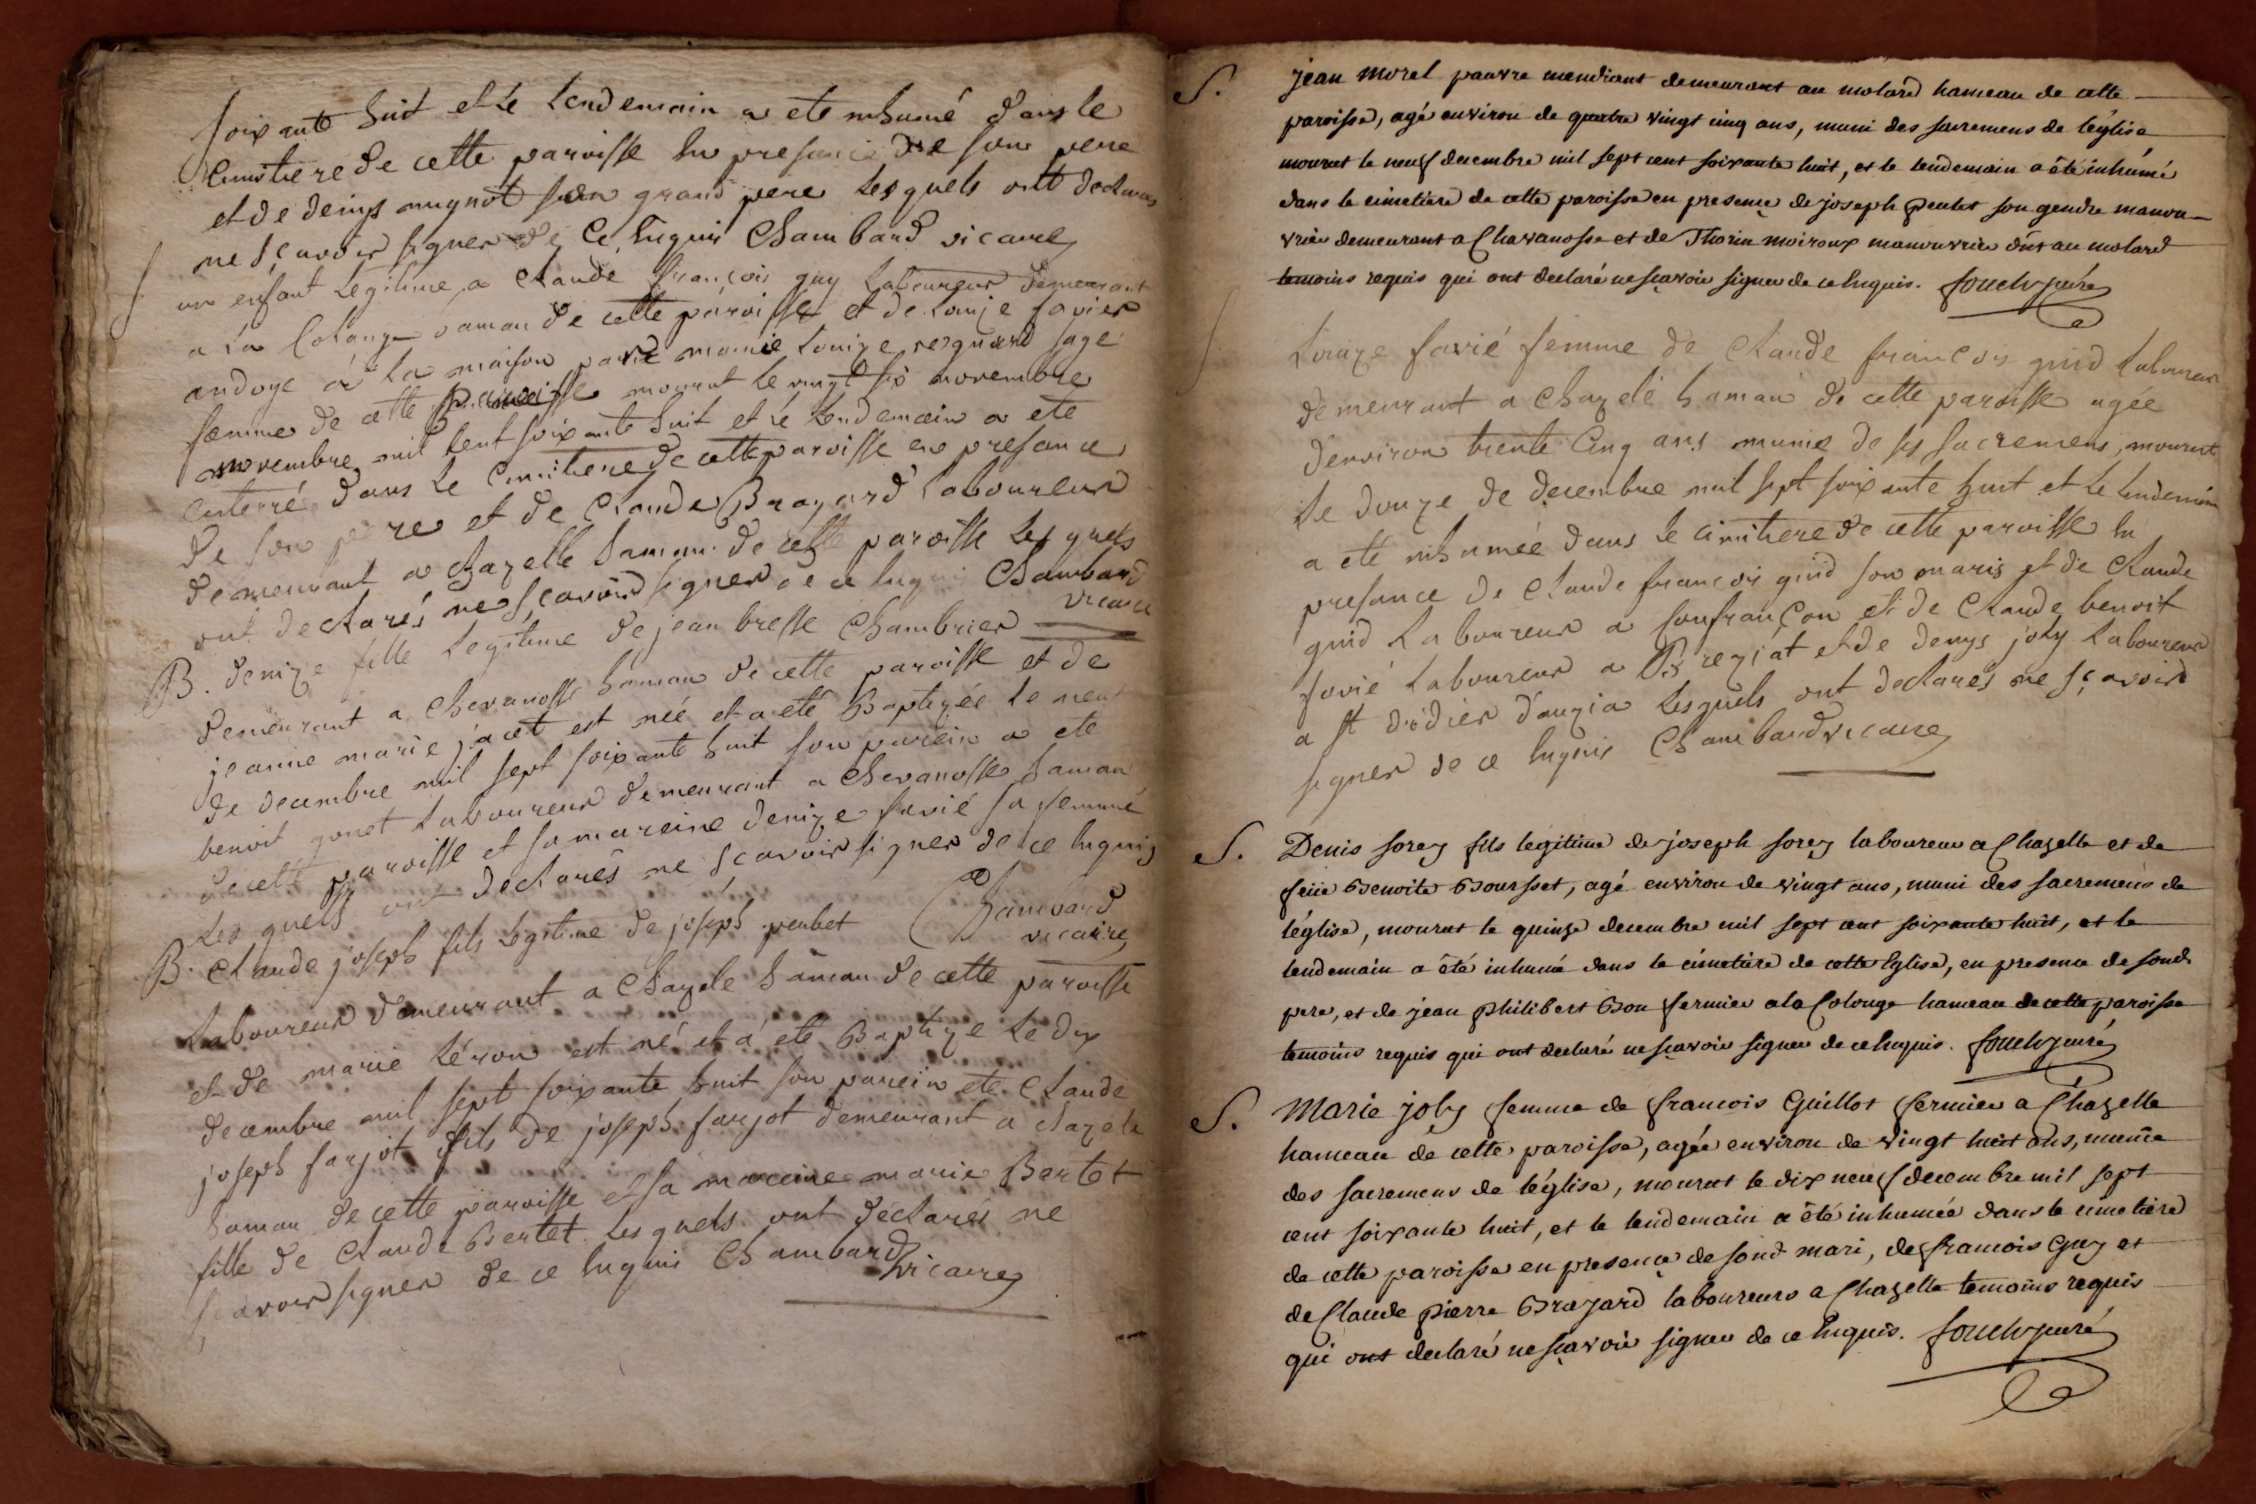 soixante huit et Le Lendemain a ete inhumé dans le
Cimitiere de cette paroisse En presance de son pere
et de denys mugnot son grand pere Lesquels ont declares
ne sçavoir signer de Ce Enquis Chambard vicaire
S un enfant Legitime a Claude françois guy Laboureur demeurant
a La Colange haman de cette paroisse et de Louize favier
andoyé a La maison par marie Louize sage
famme de cette paroisse mourut Le vingt six novembre
novembre mil Cent soixante huit et Le Lendemain a ete
enterré dans Le Cimitiere de cette paroisse en presance
de son pere et de Claude Brayard Laboureur
demeurant a chazelle haman de cette paroisse Lesquels
ont declarés ne sçavoir signer de ce Enquis Chambard
vicaire
B. denize fille Legitime de jean bresse Chambrier
demeurant a Chevanosse haman de cette paroisse et de
jeanne marie jacet est née et a eté Baptizée Le neuf
de decembre mil sept soixante huit son parein a ete
benoit gonet Laboureur demeurant a Chevanosse haman
de cette paroisse et sa mareine denize favié sa femme
Les quels ont declarés ne sçavoir signer de ce Enquis
Chambard
vicaire
B. Claude joseph fils Legitime de joseph peubet
Laboureur demeurant a Chazele haman de cette paroisse
et de marie Léron est né et a ete Baptize Le dix
decembre mil sept soixante huit son parein ete Claude
joseph farjot fils de joseph farjot demeurant a chazele
haman de cette paroisse et sa mareine marie Bertet
fille de Claude Bertet Lesquels ont declarés ne
sçavoir signer de ce Enquis Chambard vicaire
S. jean morel pauvre mendiant demeurant au molard hameau de cette
paroisse, agé environ de quatre vingt cinq ans, muni des sacremens de l'église
mourut le neuf decembre mil sept cent soixante huit, et le lendemain a été inhumé
dans le cimetiere de cette paroisse en presence de joseph peubet son gendre manou-
vrier demeurant a Chavanosse et de Thorin moiroux manouvrier dût au molard
temoins requis qui ont declaré ne sçavoir signer de ce Enquis. fouchy curé
S Louize favié femme de Claude françois guid Laboureur
demeurant a Chazele haman de cette paroisse agée
d'environ trente Cinq ans munie de ses sacremens, mourut
Le douze de decembre mil sept soixante huit et Le Lendemain
a eté inhumée dans le cimitiere de cette paroisse En
presance de Claude françois guid son maris et de Claude
guid Laboureur a Confrançon et de Claude benoit
favié Laboureur a Bregiat et de denys joly Laboureur
a st didier d'auzia Lesquels ont declarés ne sçavoir
signer de ce Enquis Chambard vicaire
S. Denis sorey fils legitime de joseph sorey laboureur a Chazelle et de
feüe Benoite Boursset, agé environ de vingt ans, muni des sacremens de
l'église, mourut le quinze decembre mil sept cent soixante huit, et le
lendemain a été inhumé dans le cimetiere de cette Eglise, en presence de sond.
pere, et de jean philibert Bon fermier a la Colonge hameau de cette paroisse
temoins requis qui ont declaré ne sçavoir signer de ce Enquis. fouchy curé
S. Marie joly femme de francois Guillot fermier a Chazelle
hameau de cette paroisse, agée environ de vingt huit ans, munie
des sacremens de l'église, mourut le dix neuf decembre mil sept
cent soixante huit, et le lendemain a été inhumée dans le cimetiere
de cette paroisse en presence de sond. mari, de francois Guy et
de Claude pierre Brayard laboureurs a Chazelle temoins requis
qui ont declaré ne sçavoir signer de ce Enquis. fouchy curé